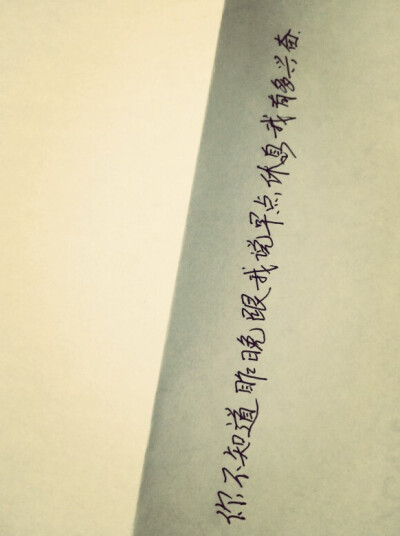 你不知道昨晚跟我说早点休息我有多兴奋